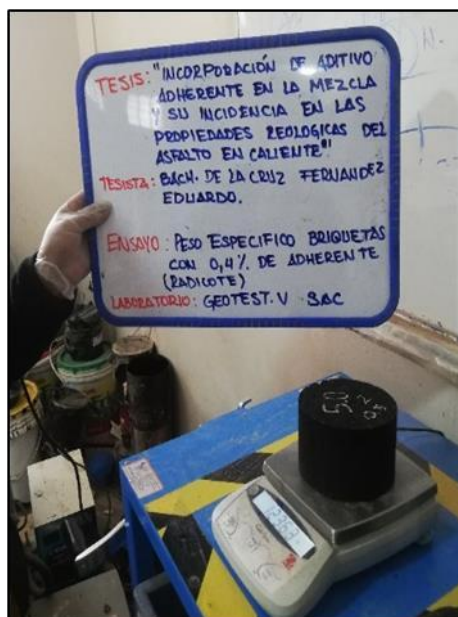 TESIS: "INCORPORACIÓN DE ADITIVO
ADHERENTE EN LA MEZCLA
Y SU INCIDENCIA EN LAS
PROPIEDADES REOLOGICAS DEL
ASFALTO EN CALIENTE"
TESISTA: BACH. DE LA CRUZ FERNANDEZ
EDUARDO.
ENSAYO: PESO ESPECIFICO BRIQUETAS
CON 0,4% DE ADHERENTE
(RADICOTE)
LABORATORIO: GEOTEST.V SAC